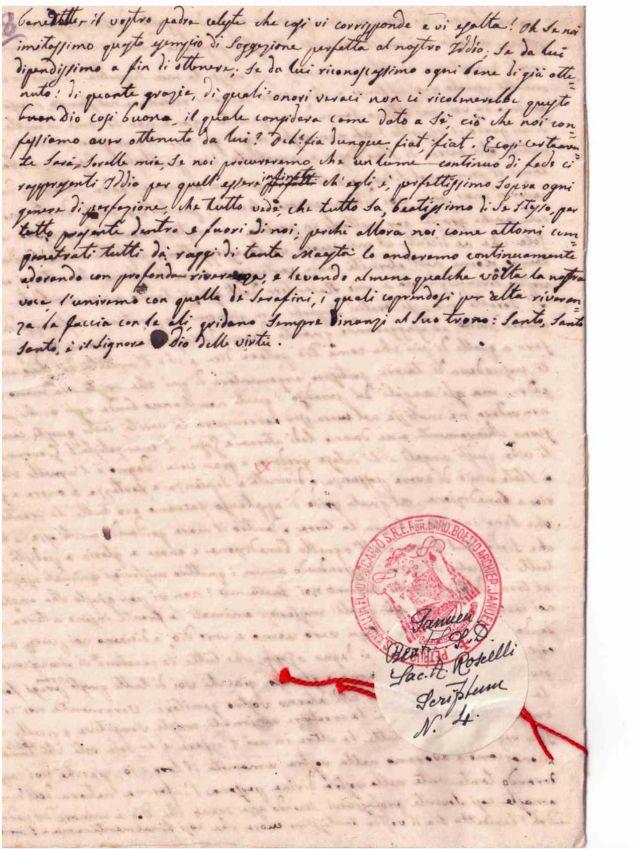 8
benedette, il vostro padre celeste che così vi corrisponde e vi esalta! Oh se noi
imitassimo questo esempio di soggezione perfetta al nostro Iddio; se da lui
dipendissimo a fin di ottenere; se da lui riconoscessimo ogni bene di già otte=
nuto: di quante grazie, di quali onori veraci non ci ricolmerebbe questo
buon dio così buono, il quale considera come dato a Sè ciò che noi con=
fessiamo aver ottenuto da lui? Deh! fia dunque, fiat, fiat. E così certamen=
te sarà, Sorelle mie, se noi procureremo, che un lume continuo di fede ci
rappresenti Iddio per quell'essere infinito ch'egli è, perfettissimo sopra ogni
genere di perfezione, che tutto vide, che tutto sa, beatissimo di se stesso, per
tutto presente dentro e fuori di noi, perchè allora noi come attomi com=
penetrati tutti dai raggi di tanta Maestà lo anderemo continuamente
adorando con profonda riverenza, e levando almeno qualche volta la nostra
voce l'uniremo con quella de' Serafini, i quali coprendosi per alta riveren=
za la faccia con le ali, gridano sempre dinanzi al suo trono: Santo, Santo
Santo, è il Signore Dio delle virtù.
PETRUS S.R.E. CARD. BOETTO ARCHIEP. JANUEN
Januen
S.D.
Sac. A. Roscelli
Scriptum
N. 4.